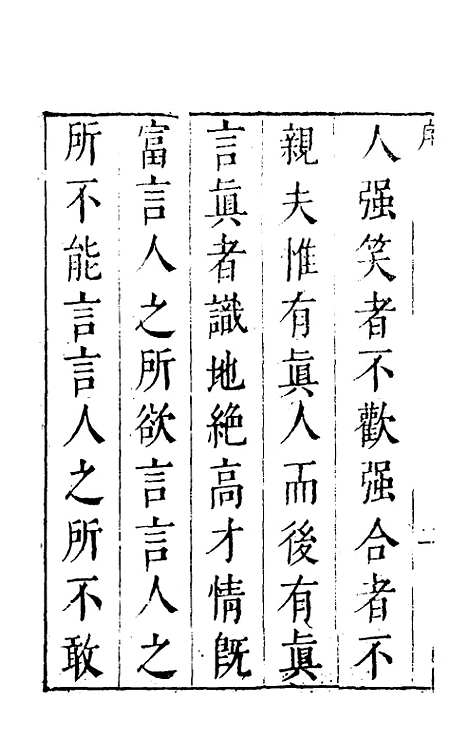 序
二
人强笑者不歡强合者不
親夫惟有眞人而後有眞
言眞者識地絶高才情旣
富言人之所欲言言人之
所不能言言人之所不敢